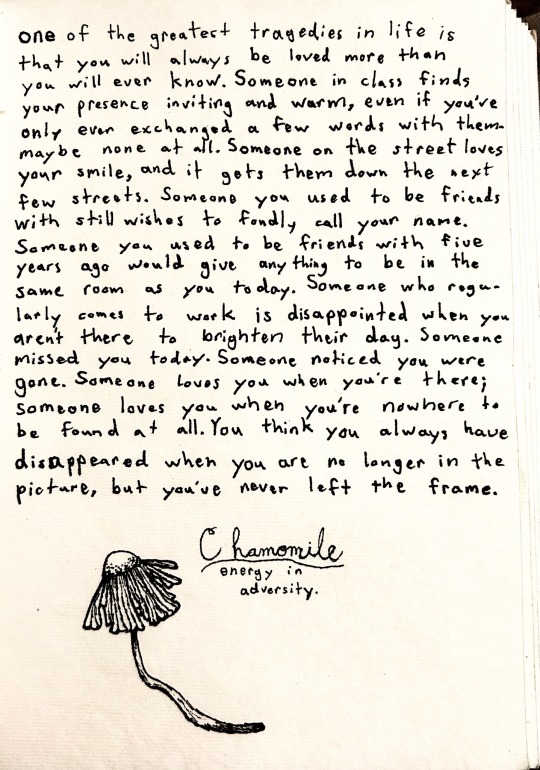 one of the greatest tragedies in life is
that you will always be loved more than
you will ever know. Someone in class finds
your presence inviting and warm, even if you've
only ever exchanged a few words with them-
maybe none at all. Someone on the street loves
your smile, and it gets them down the next
few streets. Someone you used to be friends
with still wishes to fondly call your name.
Someone you used to be friends with five
years ago would give anything to be in the
same room as you today. Someone who regu-
larly comes to work is disappointed when you
aren't there to brighten their day. Someone
missed you today. Someone noticed you were
gone. Someone loves you when you're there;
someone loves you when you're nowhere to
be found at all. You think you always have
disappeared when you are no longer in the
picture, but you've never left the frame.
Chamomile
energy in
adversity.